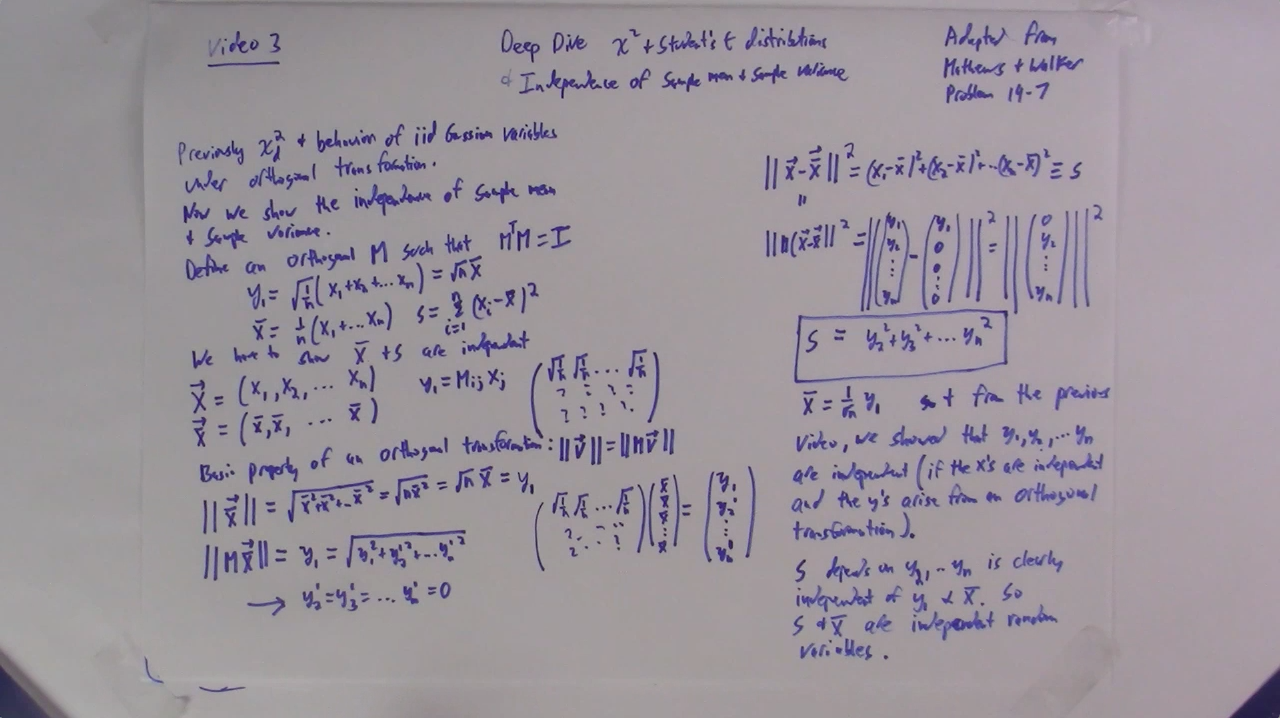 Video 3
Deep Dive χ² + Student's t distributions
& Independence of Sample mean + Sample variance
Adapted from
Mathews + Walker
Problem 14-7
Previously χ_d² + behavior of iid Gaussian variables
under orthogonal transformation.
Now we show the independence of sample mean
+ Sample variance.
Define an orthogonal M such that MᵀM = I
y₁ = √(1/n) (x₁+x₂+...xₙ) = √n x̄
x̄ = 1/n (x₁+...xₙ) S = Σᵢ₌₁ⁿ (xᵢ-x̄)²
We have to show x̄ + S are independent
x⃗ = (x₁, x₂, ... xₙ) yᵢ = Mᵢⱼ xⱼ
x̄⃗ = (x̄, x̄, ... x̄)
(√(1/n) √(1/n) ... √(1/n)
? ? ? ?
? ? ? ?)
Basic property of an orthogonal transformation: ||v⃗|| = ||Mv⃗||
||x̄⃗|| = √(x̄²+x̄²+...x̄²) = √(nx̄²) = √n x̄ = y₁
||Mx̄⃗|| = y₁ = √(y₁²+y₂'²+...yₙ'²)
→ y₂' = y₃' = ... yₙ' = 0
(√(1/n) √(1/n) ... √(1/n)) (x̄ x̄ x̄ ⋮ x̄) = (y₁ y₂' ⋮ yₙ')
||x⃗-x̄⃗||² = (x₁-x̄)²+(x₂-x̄)²+...(xₙ-x̄)² ≡ S
"
||M(x⃗-x̄⃗)||² = ||(y₁ y₂ ⋮ yₙ) - (y₁ 0 0 ⋮ 0)||² = ||(0 y₂ ⋮ yₙ)||²
S = y₂²+y₃²+...yₙ²
x̄ = 1/√n y₁ so + from the previous
Video, we showed that y₁, y₂, ... yₙ
are independent (if the x's are independent
and the y's arise from an orthogonal
transformation).
S depends on y₂, ... yₙ is clearly
independent of y₁ & x̄. So
S & x̄ are independent random
variables.